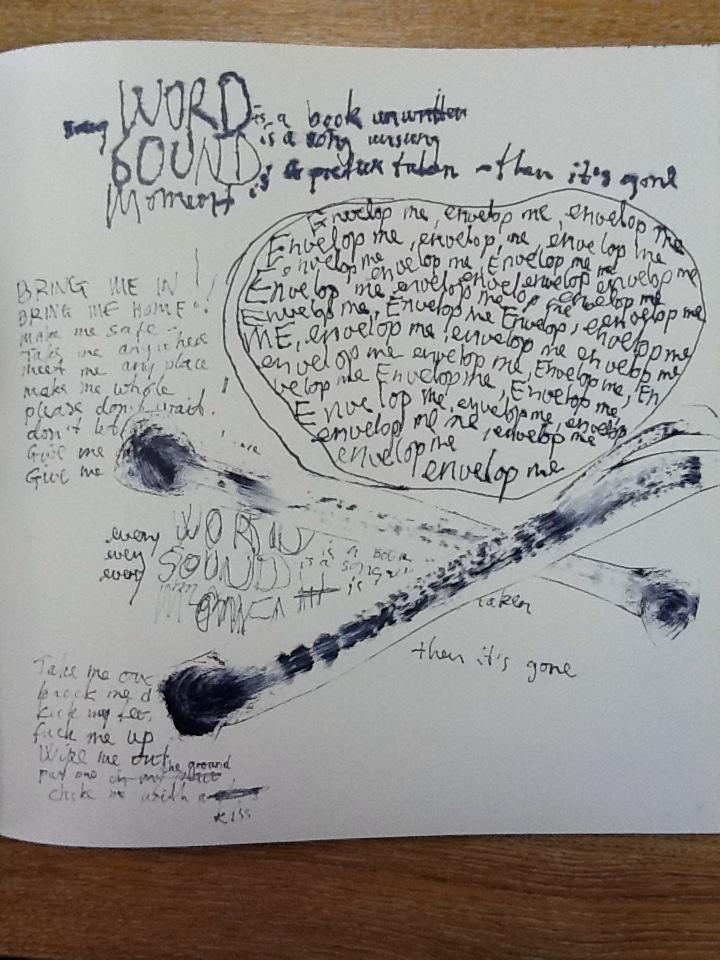 WORD is a book unwritten
SOUND is a song unsung
Moment is a picture taken - then it's gone
Envelop me, envelop me, envelop me
Envelop me, envelop, me, envelop me
Envelop me, envelop me, Envelop me
Envelop me, envelop me
Envelop me, Envelop me Envelop, envelop me
ME, envelop me, envelop me envelop me
envelop me envelop me, Envelop me, En
velop me Envelop me, Envelop me
Envelop me, envelop me, envelop
envelop me me, envelop me
envelop me
envelop me
BRING ME IN !
BRING ME HOME !
Make me safe
Take me anywhere
meet me any place
make me whole
please don't wait.
don't let
Give me
Give me
every WORD is a book
every SOUND is a song
every MOMENT is
taken
then it's gone
Take me
knock me d
kick my fee
fuck me up
Wipe me out
put one on the ground
choke me with a
kiss